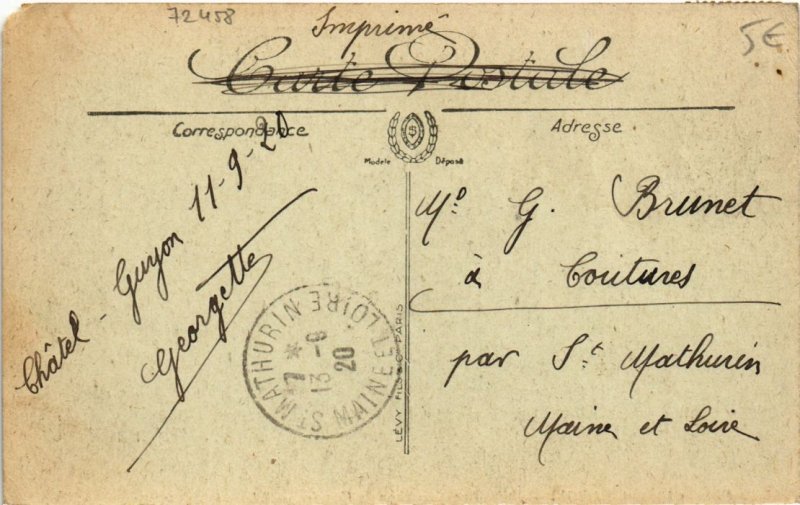 72458
Imprimé
5€
Carte Postale
Correspondance
Adresse
Modèle Déposé
Châtel-Guyon 11-9-20
Georgette
ST MATHURIN MAINE ET LOIRE
7 *
13-9
20
LÉVY FILS & Cie PARIS
Mo. G. Brunet
à Coutures
par St. Mathurin
Maine et Loire